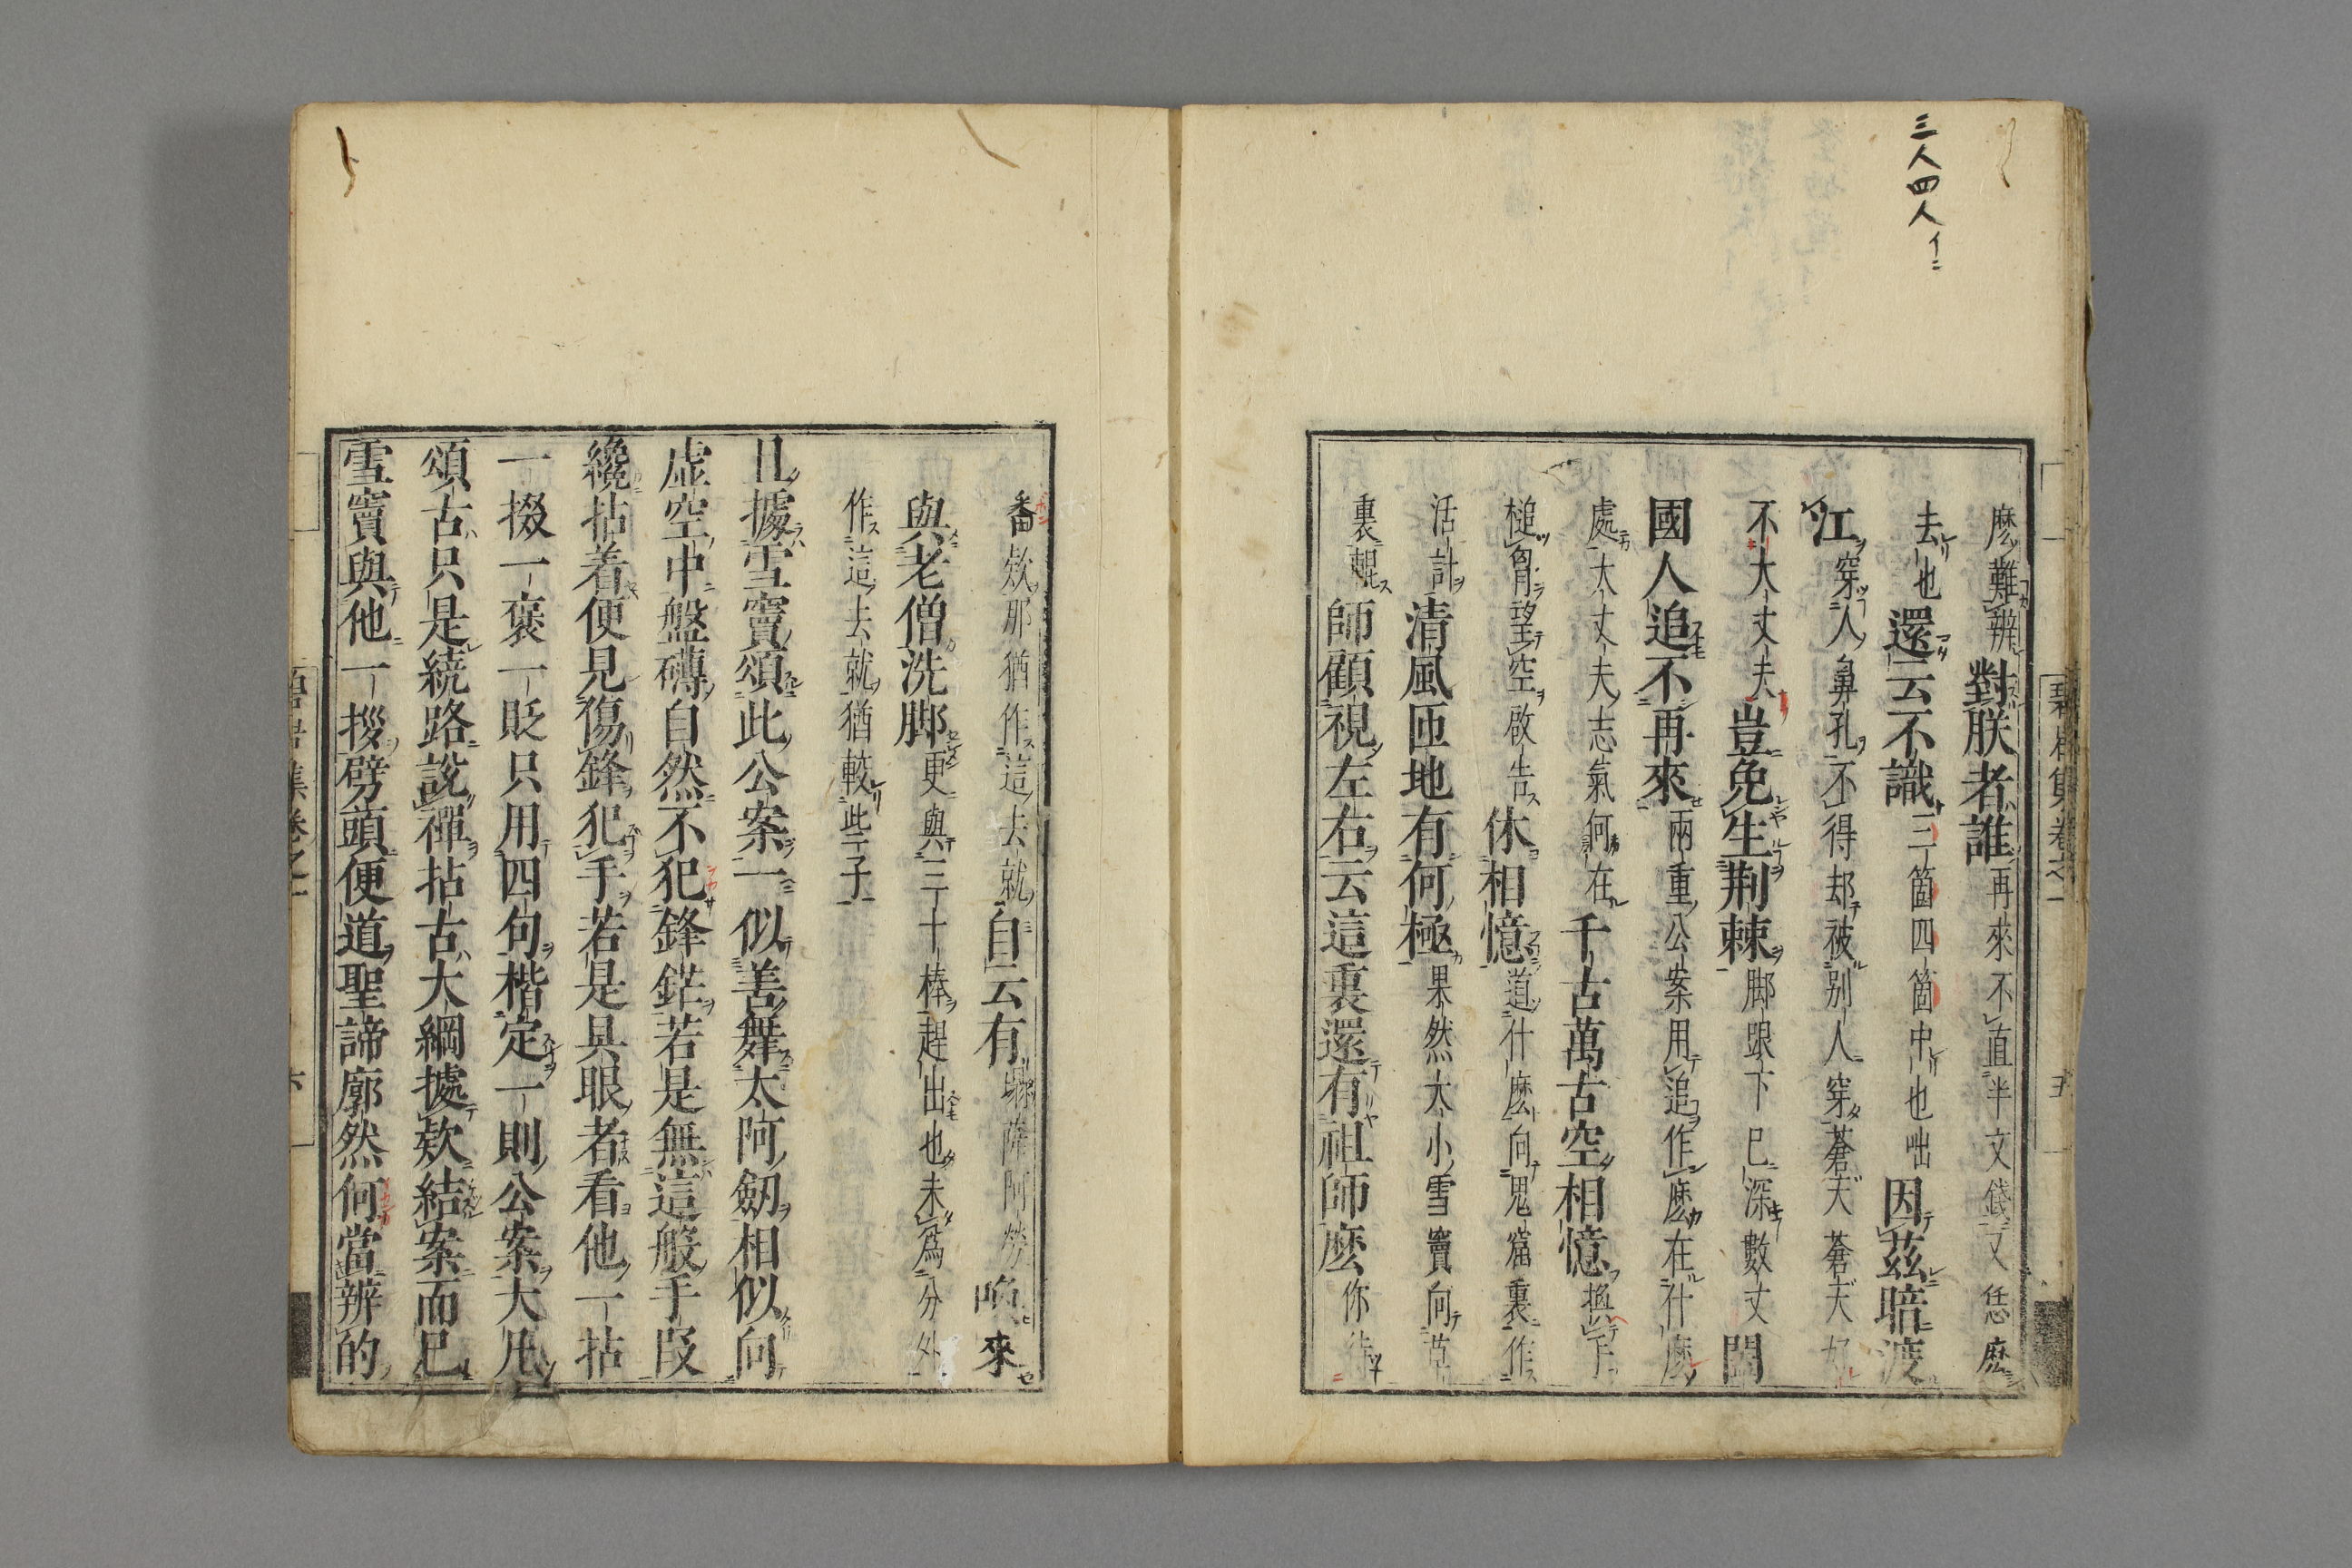 三人四人イニ
麽難辨對朕者誰再來不直半文錢又恁麽
去也還云不識三箇四箇中也咄因茲暗渡
江穿人鼻孔不得却被別人穿蒼天蒼天好
不大丈夫豈免生荆棘脚跟下已深數丈闔
國人追不再來兩重公案用追作麽在什麽
處大丈夫志氣何在千古萬古空相憶換手
槌胷望空啟告休相憶道什麽向鬼窟裏作
活計清風匝地有何極果然大小雪竇向草
裏輥師顧視左右云這裏還有祖師麽你待
番欵那猶作這去就自云有塌薩阿勞喚來
與老僧洗脚更與三十棒趕出也未爲分外
作這去就猶較些子
且據雪竇頌此公案一似善舞太阿劒相似向
虚空中盤礴自然不犯鋒鋩若是無這般手段
纔拈着便見傷鋒犯手若是具眼者看他一拈
一掇一褒一貶只用四句楷定一則公案大凡
頌古只是繞路說禪拈古大綱據欵結案而已
雪竇與他一拶劈頭便道聖諦廓然何當辨的